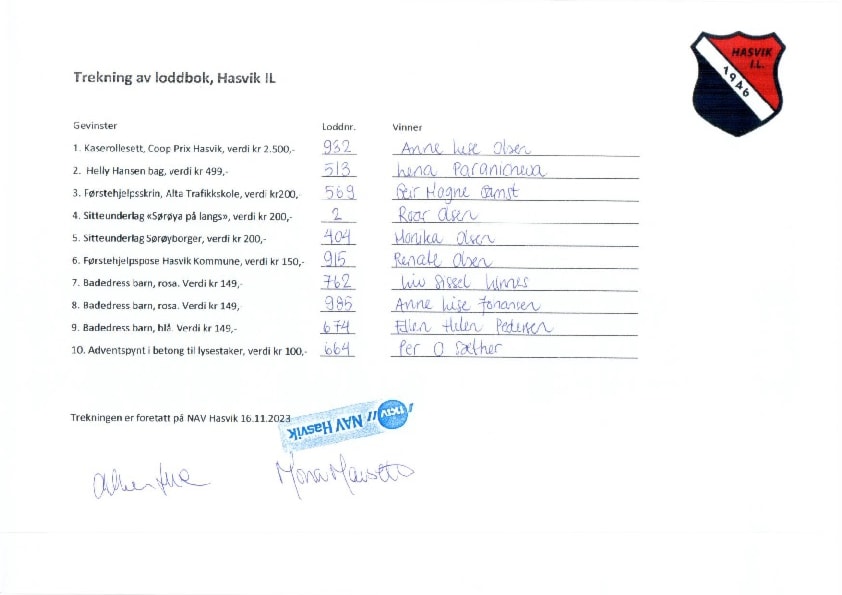 HASVIK
I.L.
1946
Trekning av loddbok, Hasvik IL
Gevinster Loddnr. Vinner
1. Kaserollesett, Coop Prix Hasvik, verdi kr 2.500,- 932 Anne Lise Olsen
2. Helly Hansen bag, verdi kr 499,- 513 Lena Paranicheva
3. Førstehjelpsskrin, Alta Trafikkskole, verdi kr200,- 569 Geir Magne
4. Sitteunderlag «Sørøya på langs», verdi kr 200,- 2 Roar Olsen
5. Sitteunderlag Sørøyborger, verdi kr 200,- 404 Monika Olsen
6. Førstehjelpspose Hasvik Kommune, verdi kr 150,- 915 Renate Olsen
7. Badedress barn, rosa. Verdi kr 149,- 762 Liv Sissel
8. Badedress barn, rosa. Verdi kr 149,- 985 Anne Lise Johansen
9. Badedress barn, blå. Verdi kr 149,- 674 Ellen Helen Pedersen
10. Adventspynt i betong til lysestaker, verdi kr 100,- 664 Per O Sæther
Trekningen er foretatt på NAV Hasvik 16.11.2023
NAV // NAV Hasvik
Mona